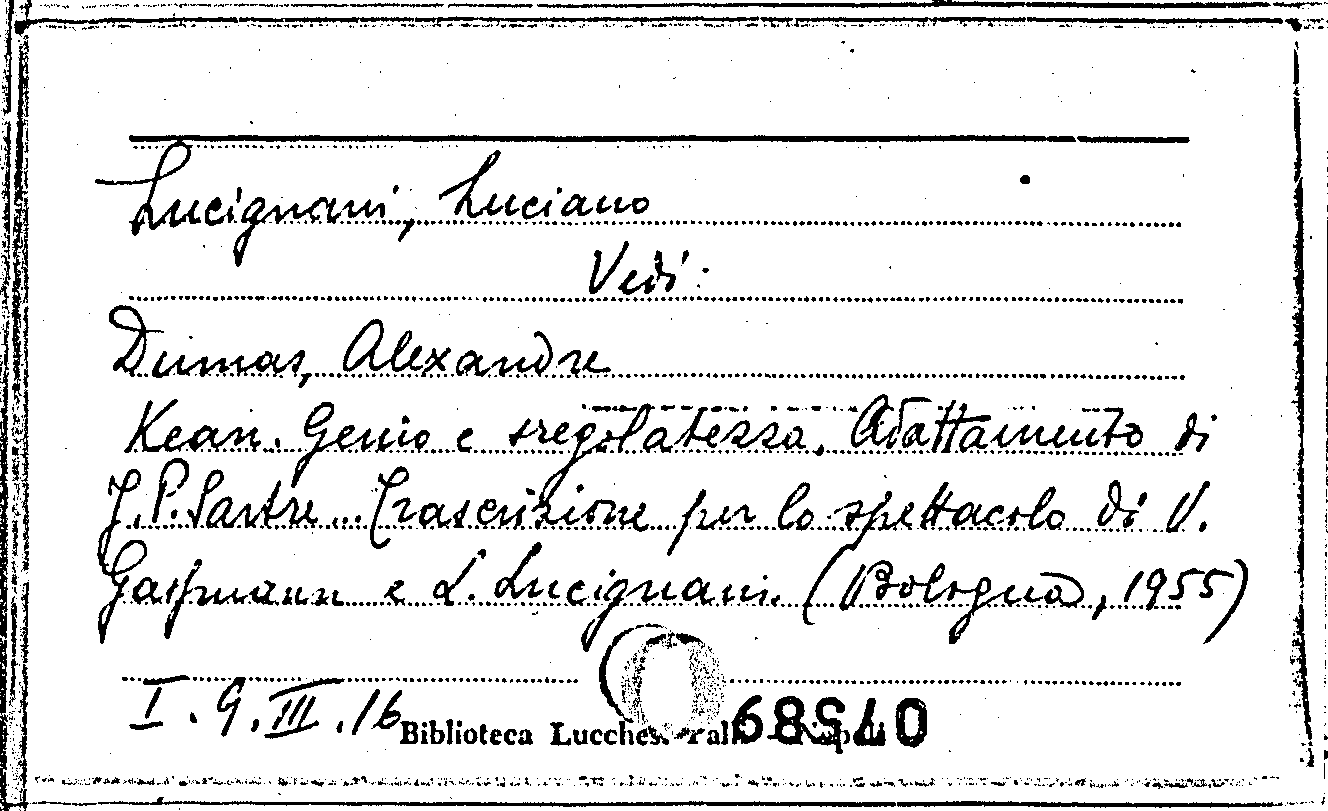 Lucignani, Luciano
Vedi:
Dumas, Alexandre
Kean. Genio e sregolatezza. Adattamento di
J.P. Sartre... Trascrizione per lo spettacolo di V.
Gassmann e L. Lucignani. (Bologna, 1955)
I.9.III.16
Biblioteca Lucchesi Palli - Napoli